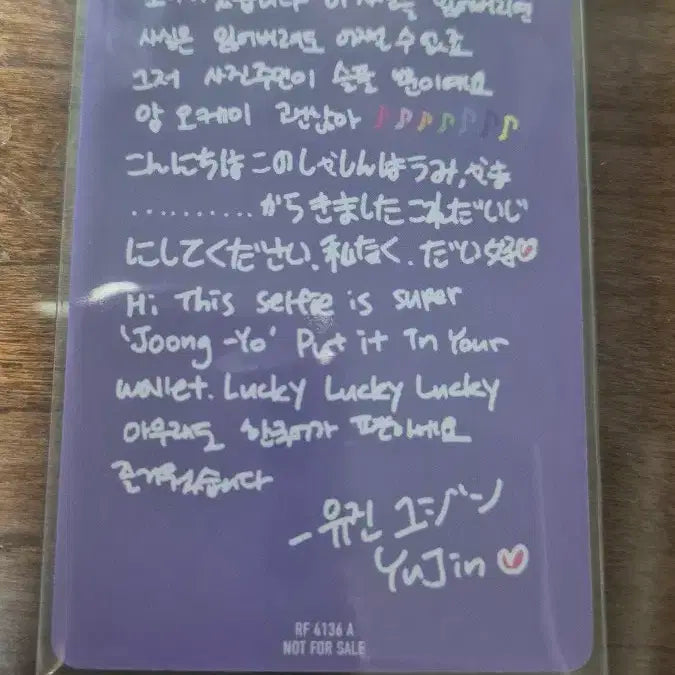 사실은 잃어버려도 어쩔 수 없죠
그저 사진주인이 슬플 뿐이에요
앙 오케이 괜찮아
こんにちは このしゃしんはうみ、やま
..........からきました これだいじ
にしてください、私たく、だい好
Hi This selfie is super
'Joong-Yo' Put it In Your
wallet. Lucky Lucky Lucky
아무래도 한국어가 편하네요
즐거웠습니다
- 유진 ユジン
YuJin
RF 4136 A
NOT FOR SALE